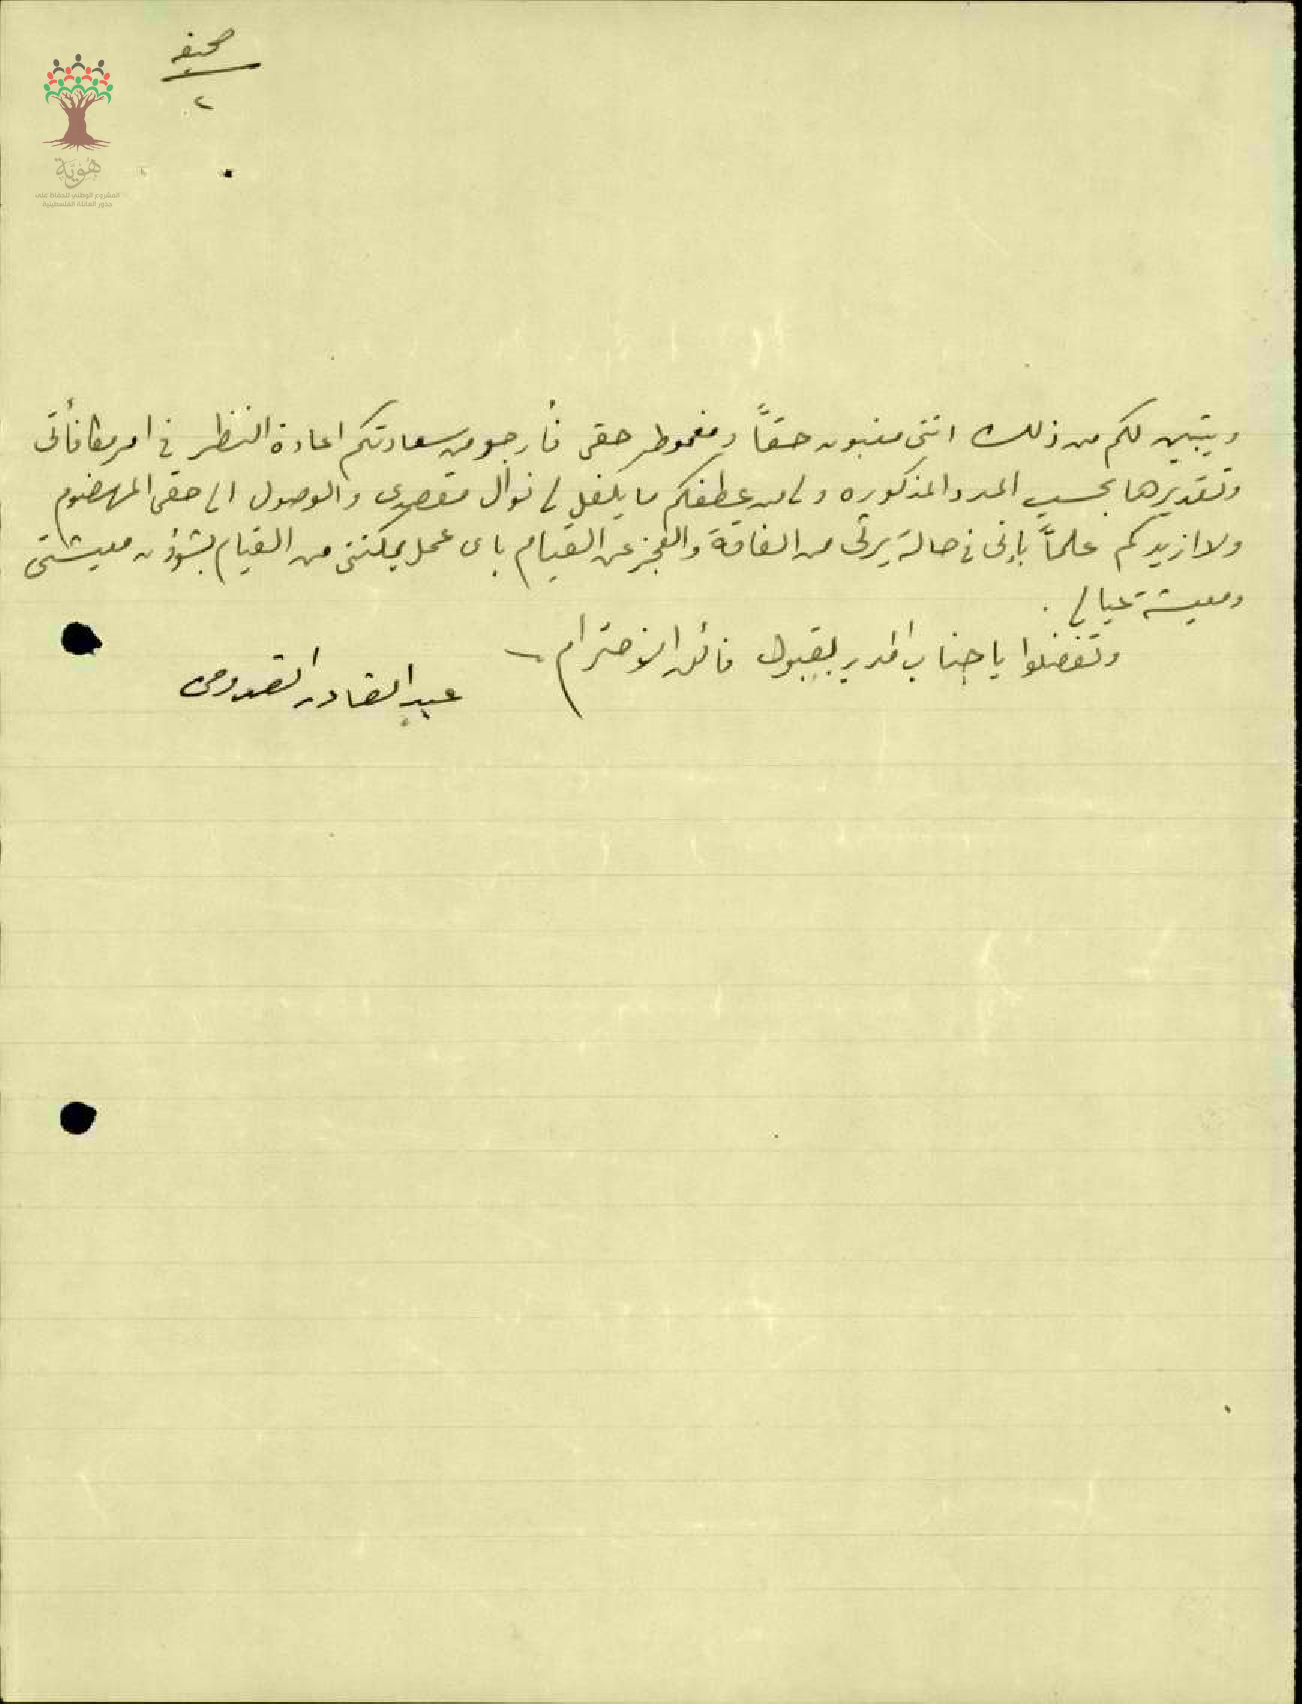 صحيفة
٢
هُوِيَّة
المشروع الوطني للحفاظ على
جذور العائلة الفلسطينية
ويتبين لكم من ذلك انني مغبون حقاً ومغموط حقي فأرجو من سعادتكم اعادة النظر في امر مكافأتي
وتقديرها بحسب المدد المذكوره ولي من عطفكم ما يكفل لي نوال مقصدي والوصول الى حقي المهضوم
ولا ازيدكم علماً بإني في حالة يرثى من الفاقة والعجز عن القيام باى عمل يمكنني من القيام بشؤون معيشتي
ومعيشة عيالي .
وتفضلوا يا جناب المدير بقبول فائق الاحترام
عبد القادر القدومي